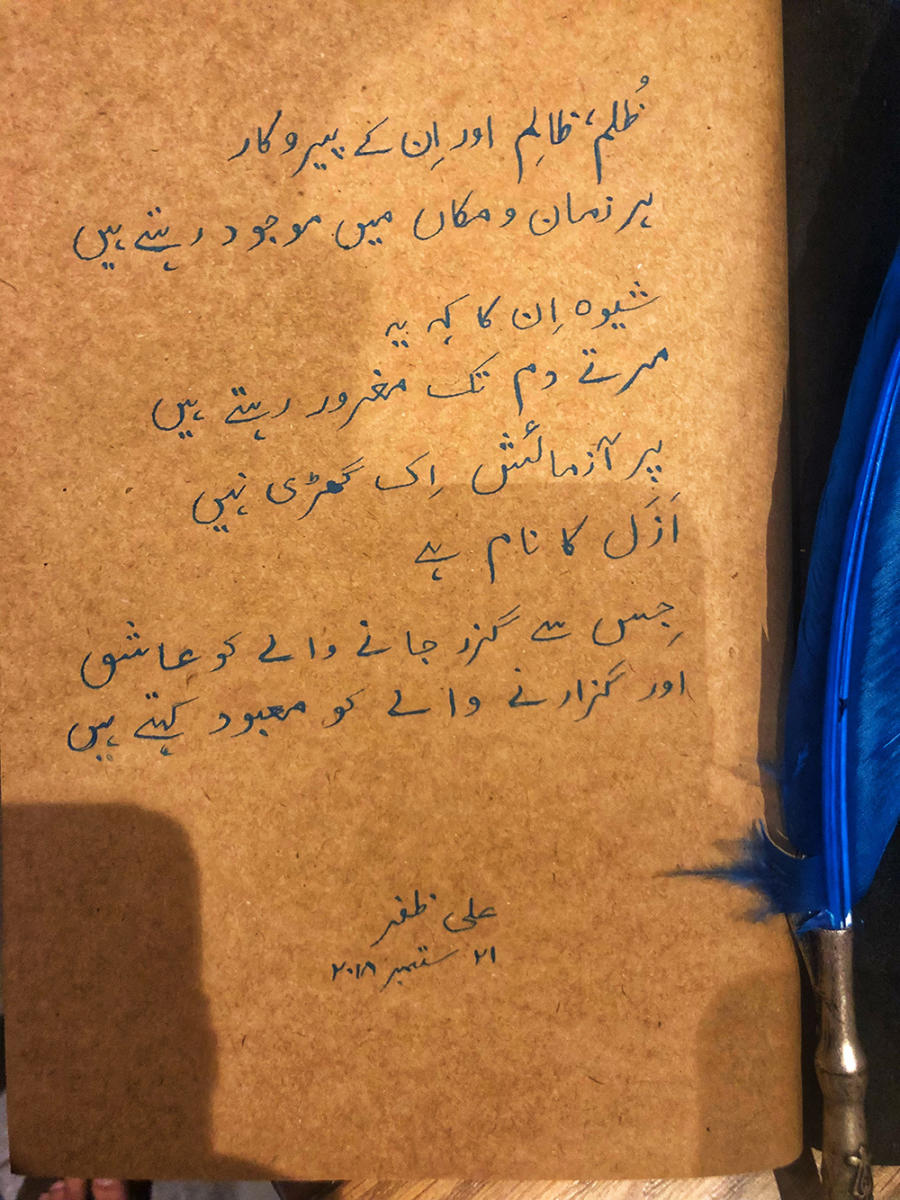 ظُلم، ظالِم اور اِن کے پیروکار
ہر زمان و مکاں میں موجود رہتے ہیں
شیوہ اِن کا کہ یہ
مرتے دم تک مغرور رہتے ہیں
پر آزمائش اِک گھڑی نہیں
اَزَل کا نام ہے
جِس سے گزر جانے والے کو عاشق
اور گزارنے والے کو معبود کہتے ہیں
علی ظفر
۲۱ ستمبر ۲۰۱۸